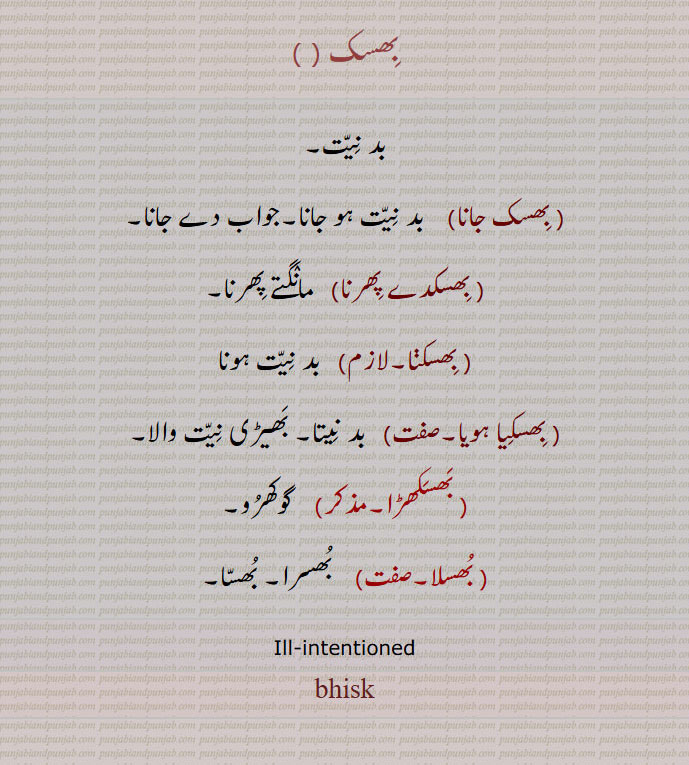 بِھسک ( )
بد نِیّت۔
(بِھسک جانا) بد نِیّت ہو جانا۔جواب دے جانا۔
(بِھسکدے پِھرنا) مانگتے پِھرنا۔
(بِھسکݨا۔لازم) بد نِیّت ہونا
(بِھسکِیا ہویا۔صفت) بد نِیتا۔ بَھیڑی نِیّت والا۔
(بَھسکَھڑا۔مذکر) گوکھرُو۔
(بُھسلا۔صفت) بُھسرا۔ بُھسّا۔
Ill-intentioned
bhisk